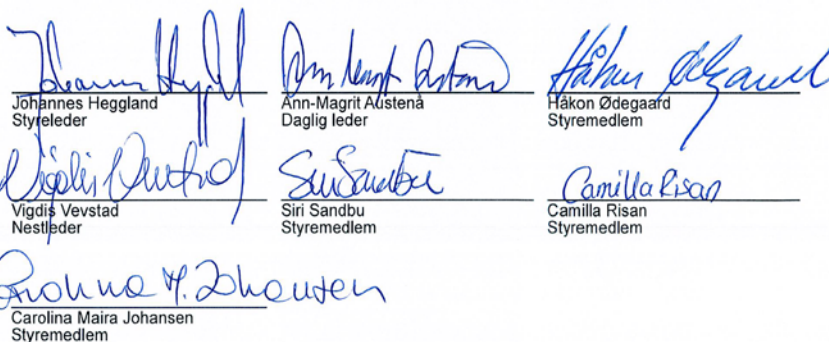 Johannes Heggland
Styreleder
Ann-Magrit Austenå
Daglig leder
Håkon Ødegaard
Styremedlem
Vigdis Vevstad
Nestleder
Siri Sandbu
Siri Sandbu
Styremedlem
Camilla Risan
Camilla Risan
Styremedlem
Carolina M. Johansen
Carolina Maira Johansen
Styremedlem